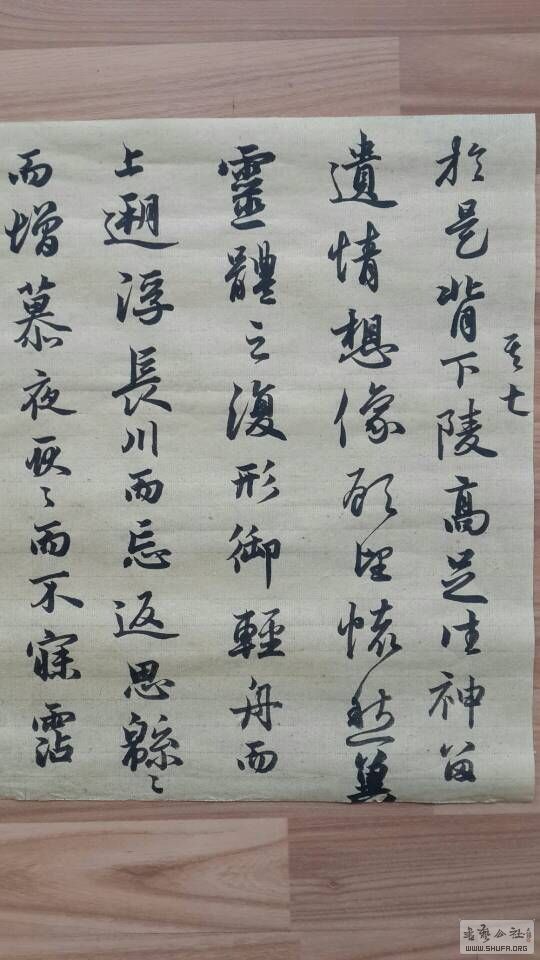 於是背下陵高足往神留
遺情想像顧望懷愁冀
靈體之復形御輕舟而
上遡浮長川而忘返思緜〻
而增慕夜耿〻而不寐霑
其七
书艺公社
WWW.SHUFA.ORG